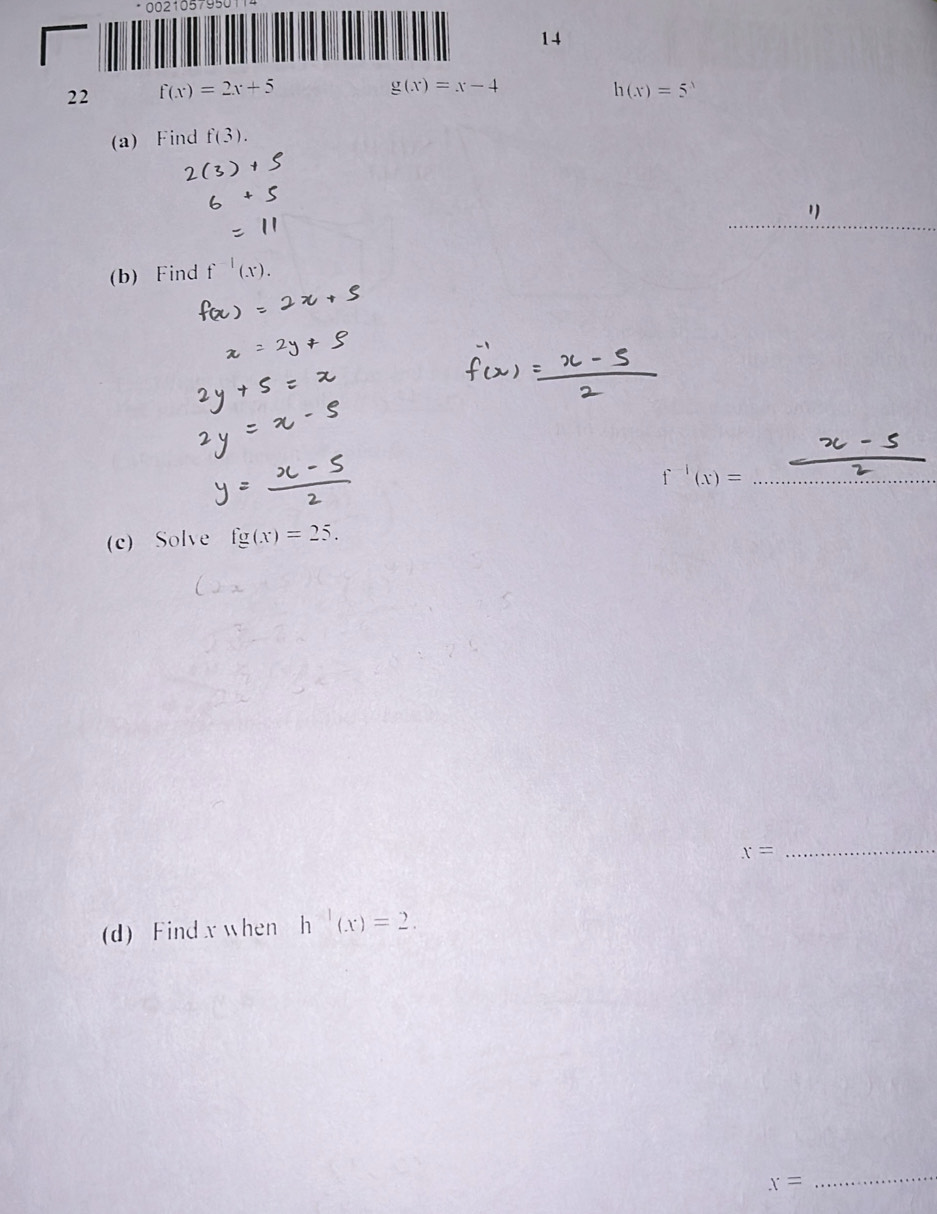 * 0021057950114
14
22 f(x) = 2x + 5 g(x) = x − 4 h(x) = 5ˣ
(a) Find f(3).
2(3) + 5
6 + 5
= 11
11
(b) Find f⁻¹(x).
f(x) = 2x + 5
x = 2y + 5
2y + 5 = x
2y = x - 5
y = x - 5 / 2
f⁻¹(x) = x - 5 / 2
f⁻¹(x) = x - 5 / 2
(c) Solve fg(x) = 25.
x =
(d) Find x when h⁻¹(x) = 2.
x =